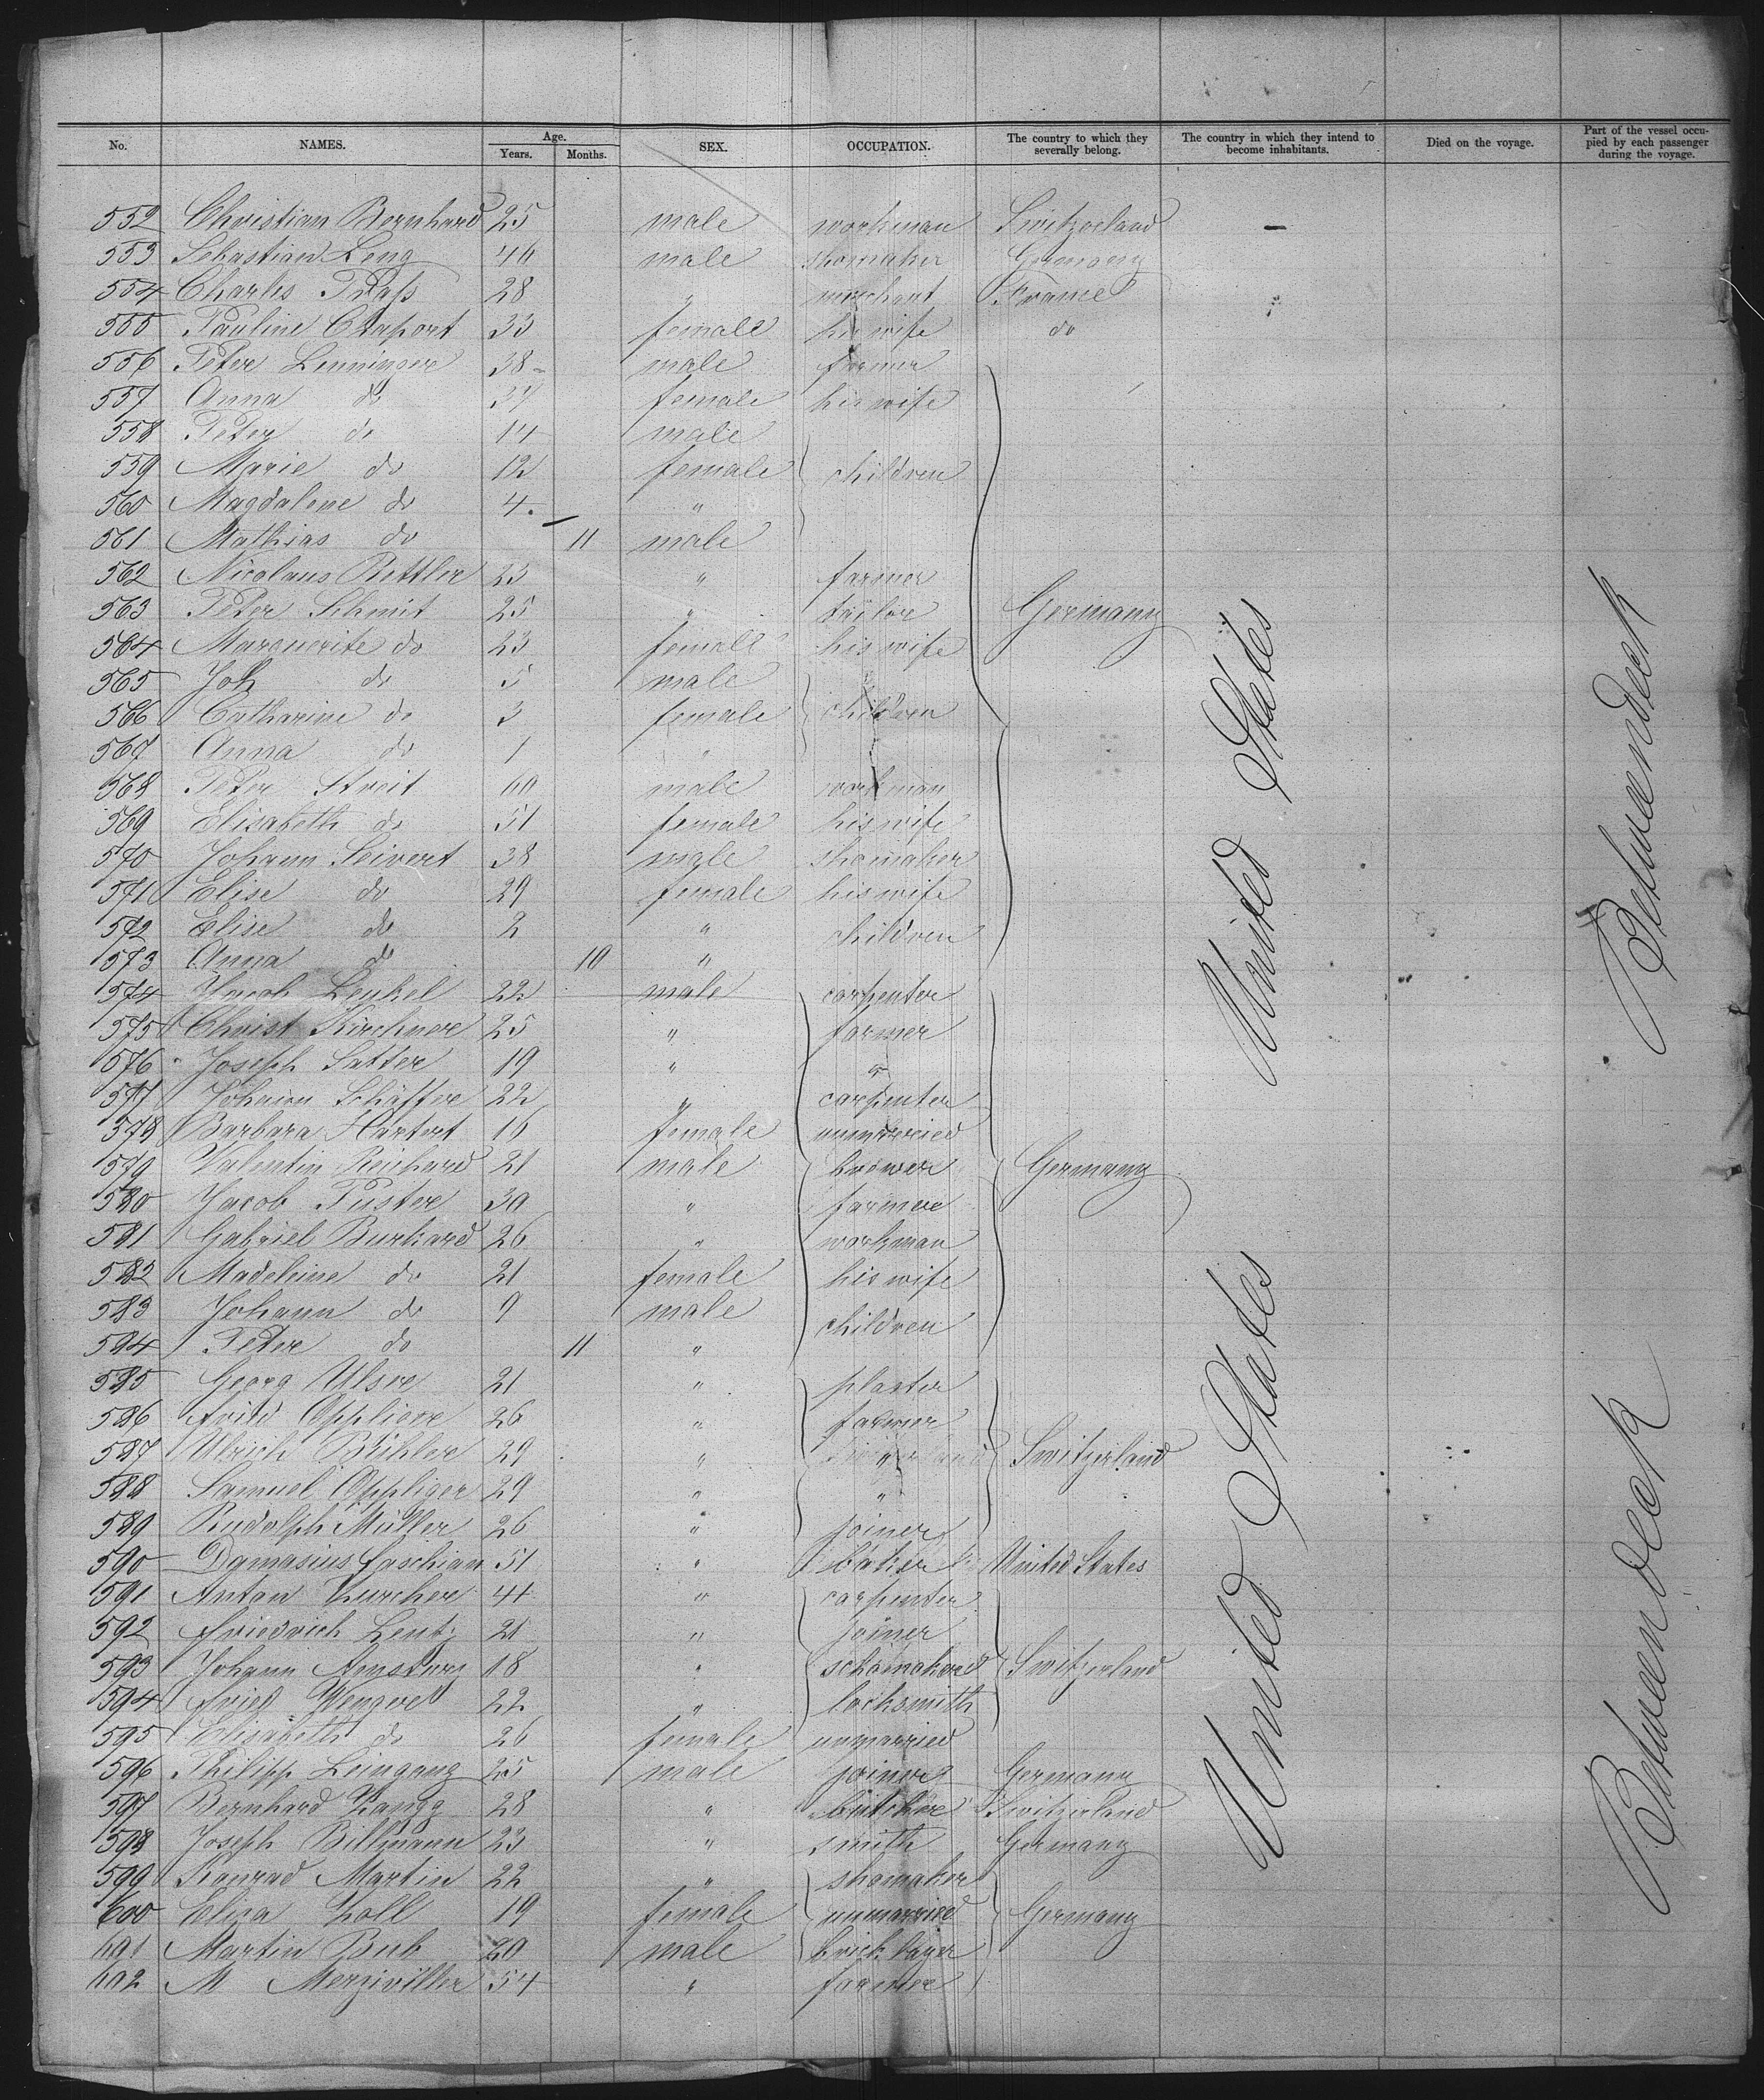 No. NAMES. Age. Years. Months. SEX. OCCUPATION. The country to which they severally belong. The country in which they intend to become inhabitants. Died on the voyage. Part of the vessel occupied by each passenger during the voyage.
552 Christian Bernhard 25 male workman Switzerland –
553 Sebastian Leng 46 male shomaker Germany
554 Charles 28 " merchant France "
555 Pauline Chaport 33 female his wife do
556 Peter Lenninger 38 male farmer
557 Anna do 37 female his wife
558 Peter do 14 male
559 Marie do 12 female children
560 Magdalene do 4 "
561 Mathias do 11 male
562 Nicolaus Bettler 23 " farmer
563 Peter Schmit 25 " tailor Germany
564 Marguerite do 23 female his wife
565 Joh do 5 male
566 Catharine do 3 female children
567 Anna do 1 "
568 Peter Streit 60 male workman
569 Elisabeth do 51 female his wife
570 Johann Seivert 38 male shomaker
571 Elise do 29 female his wife
572 Elise do 2 " children
573 Anna do 10 "
574 Jacob Lenkel 22 male carpenter
575 Christ Kirchner 25 " farmer
576 Joseph Satter 19 " "
577 Johann Schäffer 22 " carpenter
578 Barbara Hartert 16 female unmarried
579 Valentin Reichard 21 male brower Germany
580 Jacob Puster 30 " farmer
581 Gabriel Burkard 26 " workman
582 Madeleine do 21 female his wife
583 Johann do 9 male children
594 Peter do 11 "
585 Georg Ulser 21 " plaster
586 Fried Opplier 26 " farmer
587 Ulrich Bühler 29 " " Switzerland
588 Samuel Oppliger 29 " "
589 Rudolph Müller 26 " joiner
590 Damasius Caschian 51 " baker United States
591 Anton Zurcher 44 " carpenter
592 Friedrich Lentz 21 " joiner
593 Johann Amsturz 18 " schomaker Switzerland
594 Fried Wenger 22 " locksmith
595 Elisabeth do 26 female unmarried
596 Philipp Leingang 25 male joiner Germany
597 Bernhard Zangg 28 " butcher Switzerland
598 Joseph Billmann 23 " smith Germany
599 Konrad Martin 22 " shomaker
600 Elisa Zoll 19 female unmarried Germany
601 Martin Bub 20 male bricklayer
602 M Merzviller 54 " farmer
United States
United States
Betweendeck
Betweendeck